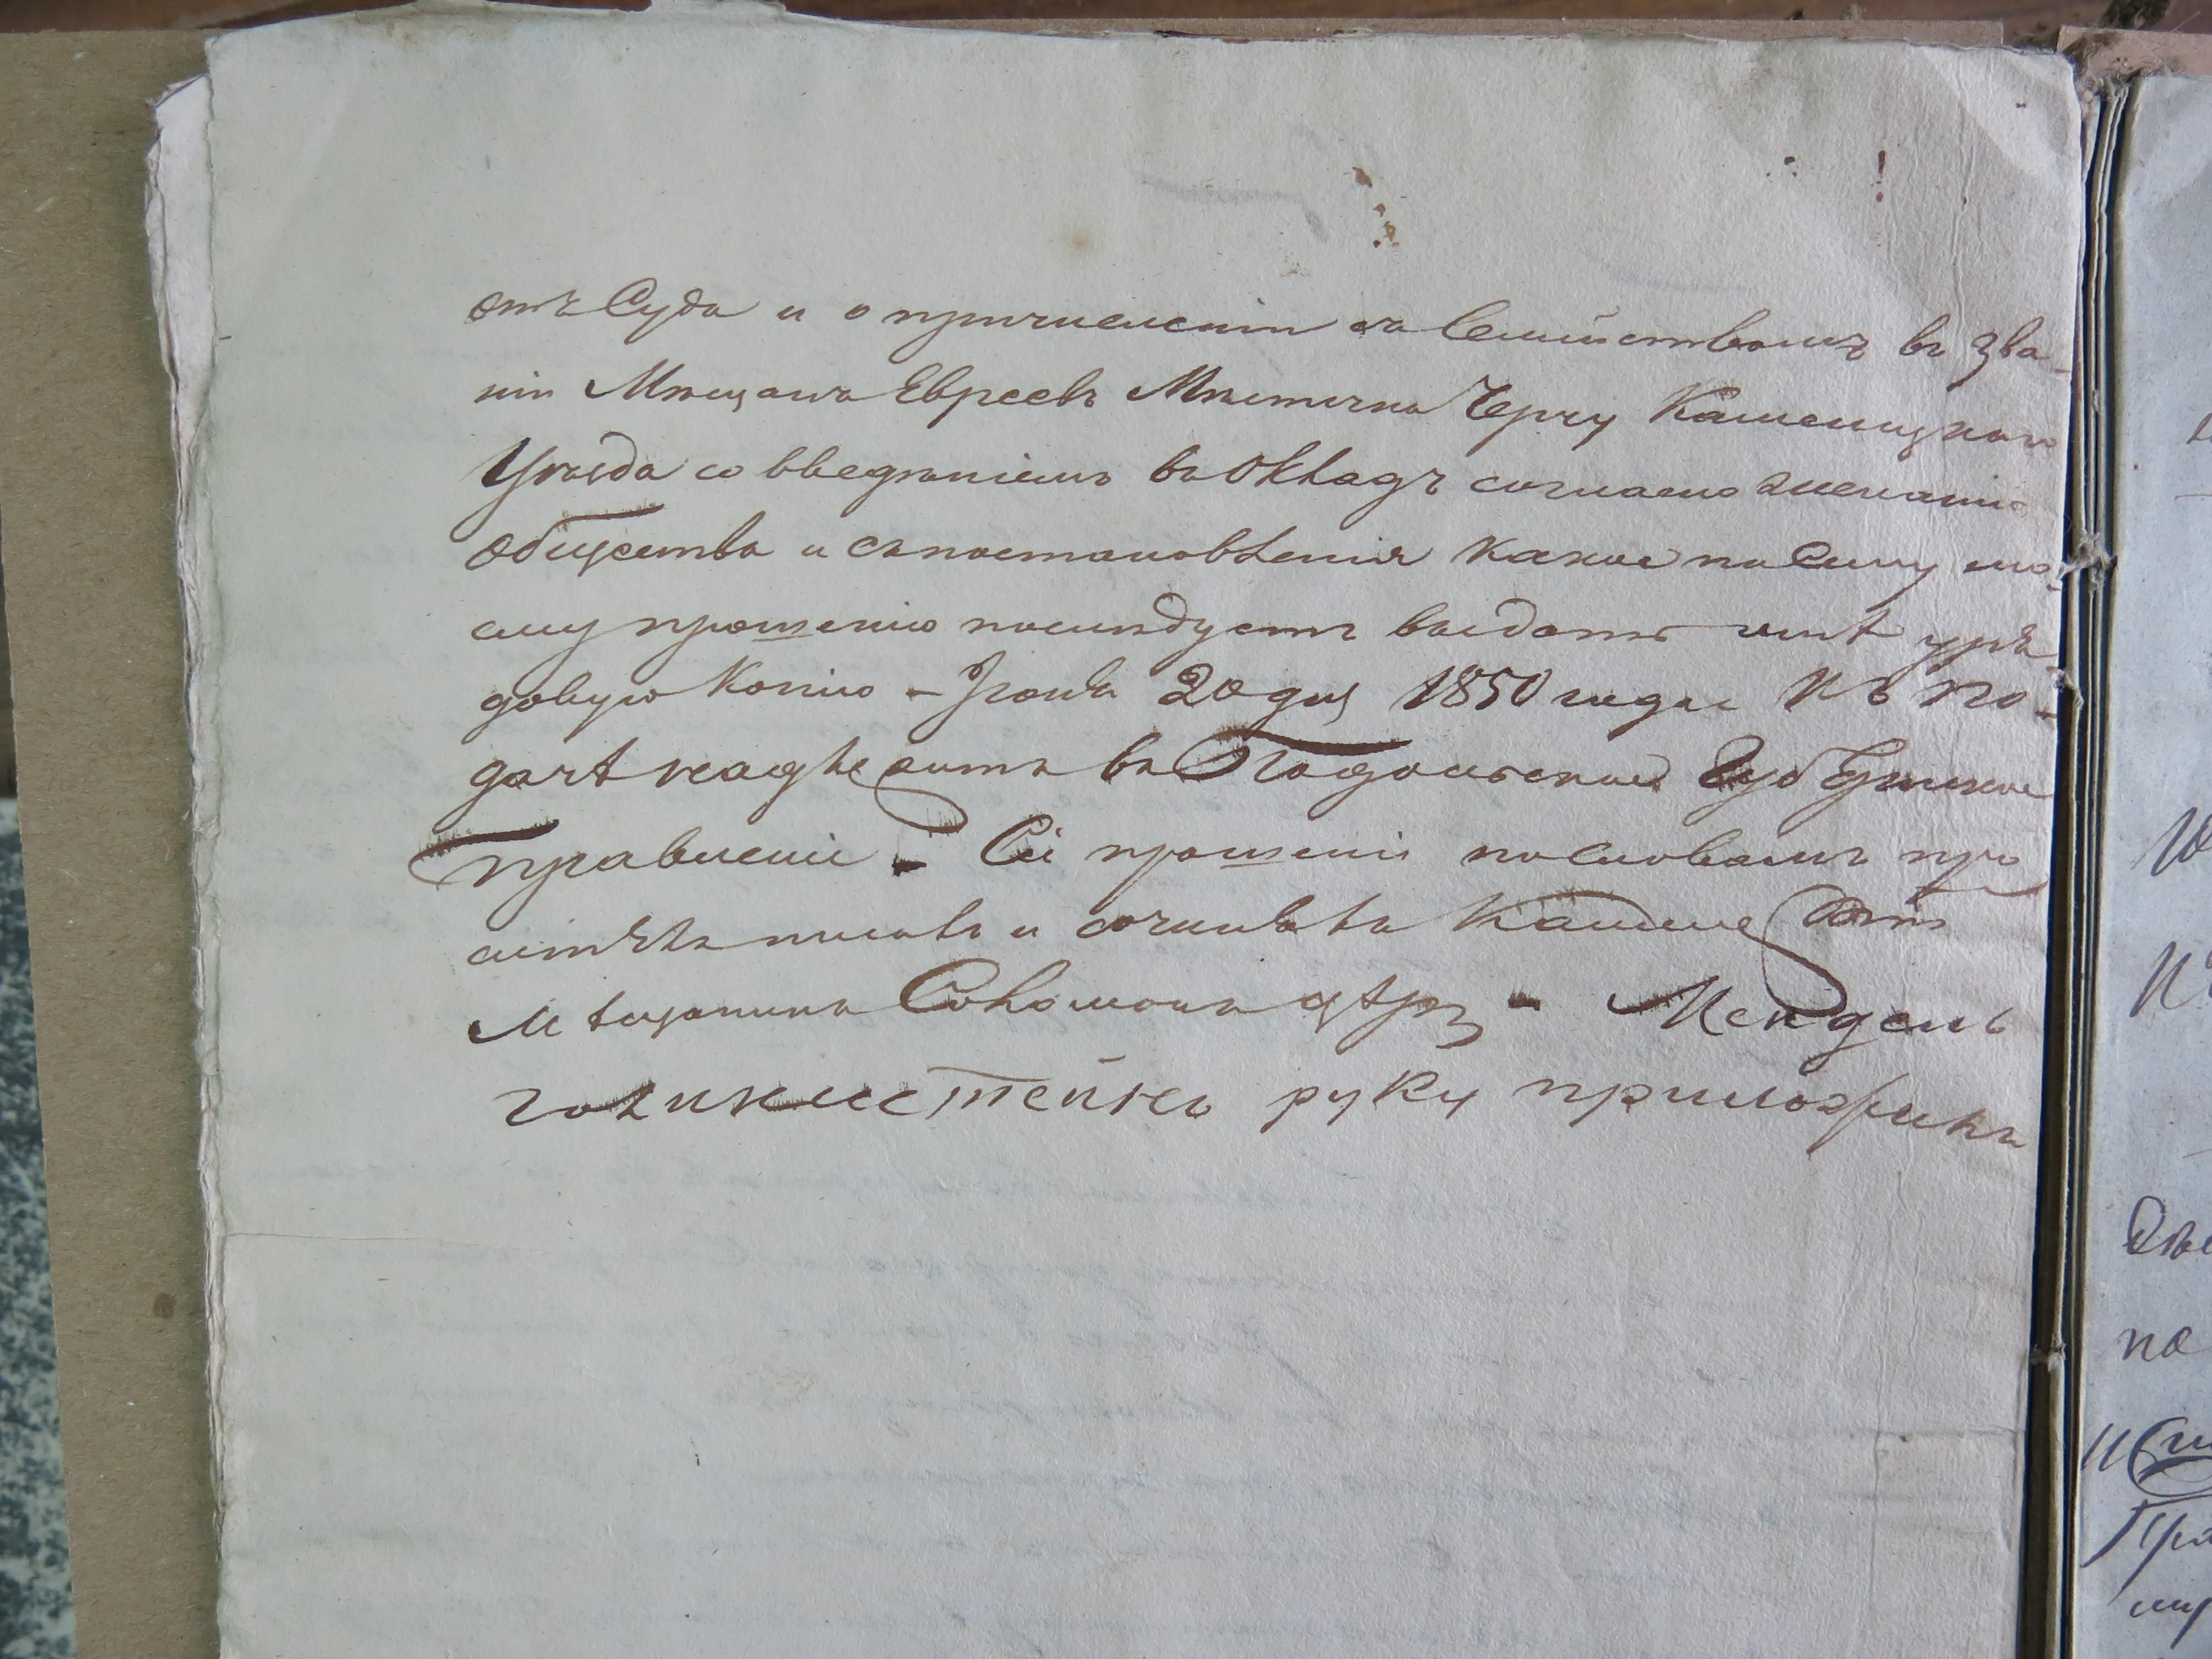 отъ Суда и о причисленіи съ Семействомъ въ зва-
ніи Мѣщанъ Евреевъ Мѣстечка Черчу Каменецкаго
Уѣзда со введѣніемъ въ окладъ согласно желанію
общества и съ постановленія какое по сему мо-
ему прошенію послѣдуетъ выдать мнѣ уря-
довую копію – Іюня 20 дня 1850 года Къ по-
дачѣ надлежитъ въ Подольское Губернское
Правленіе – Сіе прошеніе по словамъ про
сителя писалъ и сочинялъ
Мѣщанинъ Соломонъ – Мендель
руку приложилъ
По